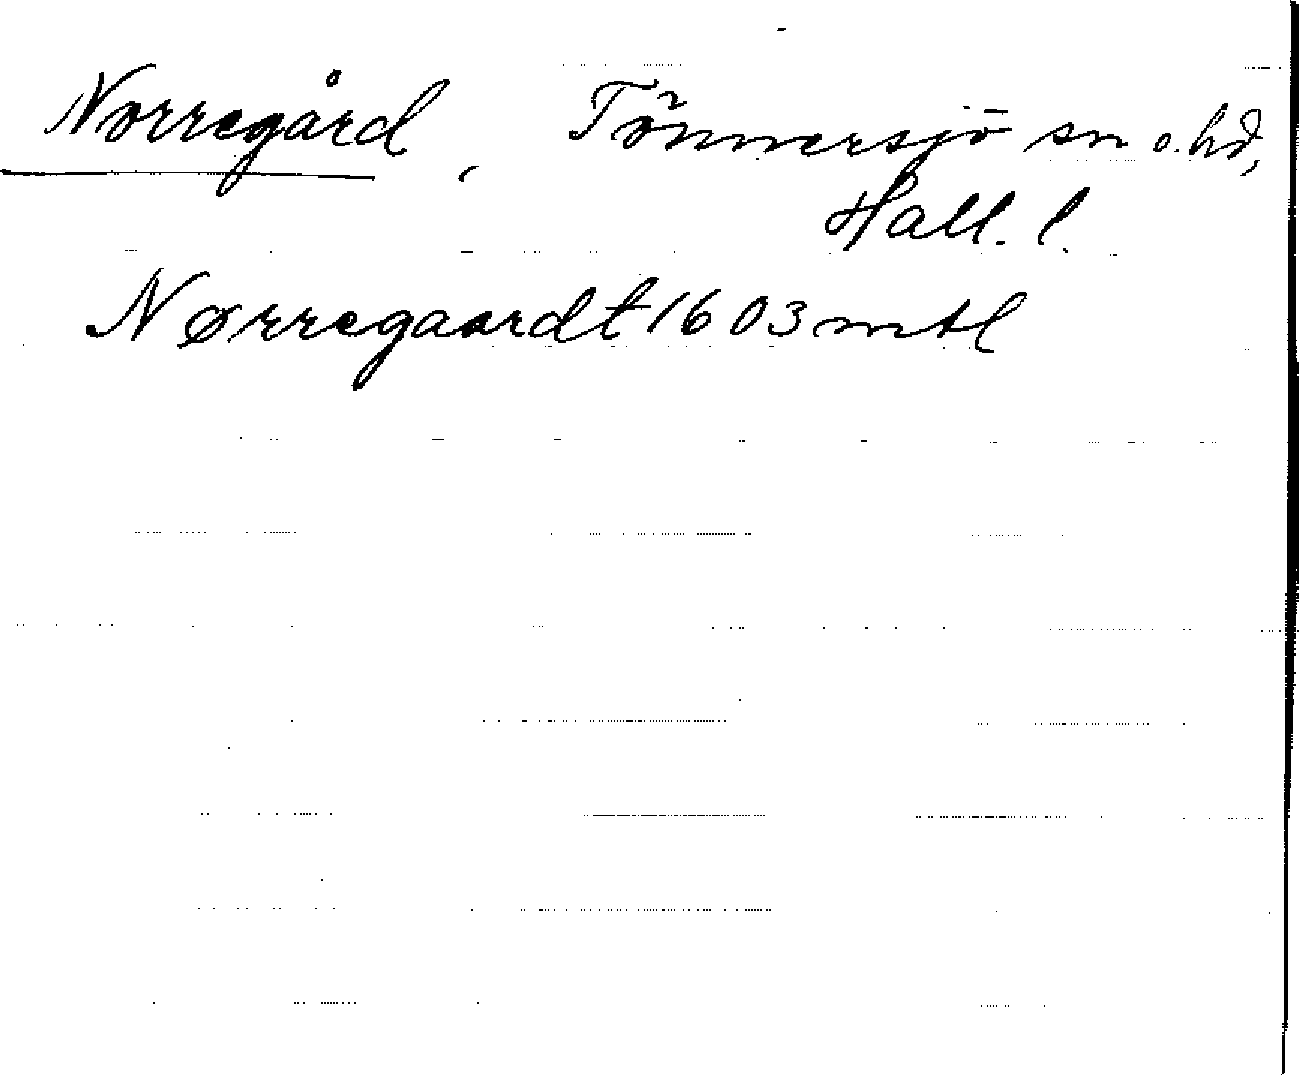 Norregård, Tönnersjö sn o. hd,
Hall. l.
Nørregaardt 1603 mtl